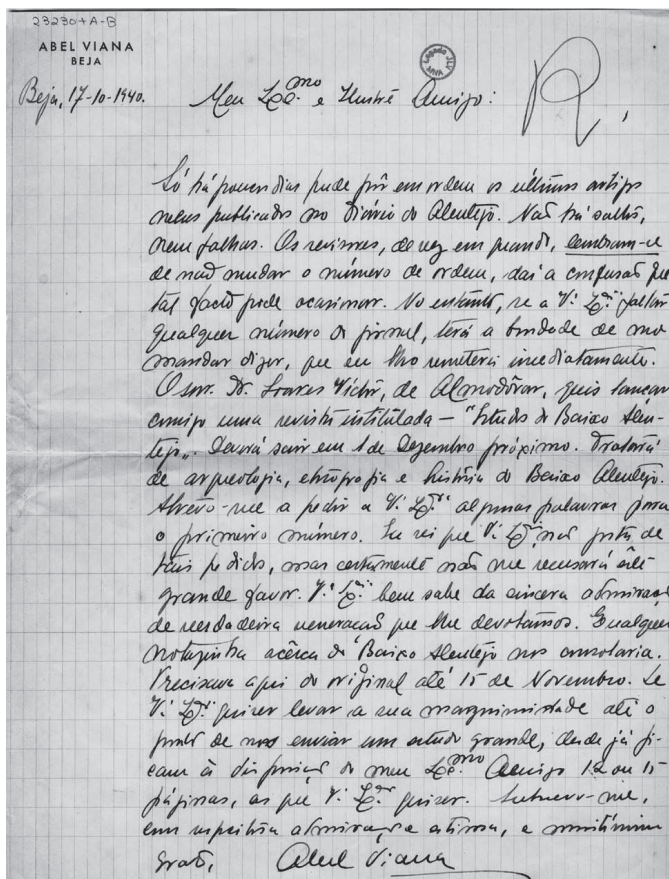 23230+A-B
ABEL VIANA
BEJA
Legado JLV
MNA
Beja, 17-10-1940.
Meu Exº.mo e Ilustre Amigo:
R,
Só há poucos dias pude pôr em ordem os últimos artigos
meus publicados no Diário do Alentejo. Não há saltos,
nem falhas. Os revisores, de vez em quando, lembram-se
de não mudar o número de ordem, daí a confusão que
tal facto pode ocasionar. No entanto, se a V.ª Ex.ª faltar
qualquer número do jornal, terá a bondade de mo
mandar dizer, que eu lho remeterei imediatamente.
O snr. Dr. Soares Victor, de Almodôvar, quis lançar
comigo uma revista intitulada — "Estudos do Baixo Alen-
tejo". Deverá sair em 1 de Dezembro próximo. Tratará
de arqueologia, etnografia e história do Baixo Alentejo.
Atrevo-me a pedir a V.ª Ex.ª algumas palavras para
o primeiro número. Eu sei que V.ª Ex.ª não gosta de
tais pedidos, mas certamente não me recusará êste
grande favor. V.ª Ex.ª bem sabe da sincera admiração
de verdadeira veneração que lhe devotamos. Qualquer
notazinha acêrca do Baixo Alentejo nos consolaria.
Precisava aqui do original até 15 de Novembro. Se
V.ª Ex.ª quizer levar a sua magnimidade até o
ponto de nos enviar um estudo grande, desde já fi-
cam à disposição do meu Ex.mo Amigo 12 ou 15
páginas, as que V.ª Ex.ª quizer. Subscrevo-me,
com respeitosa admiração e estima, e muitíssimo
grato, Abel Viana